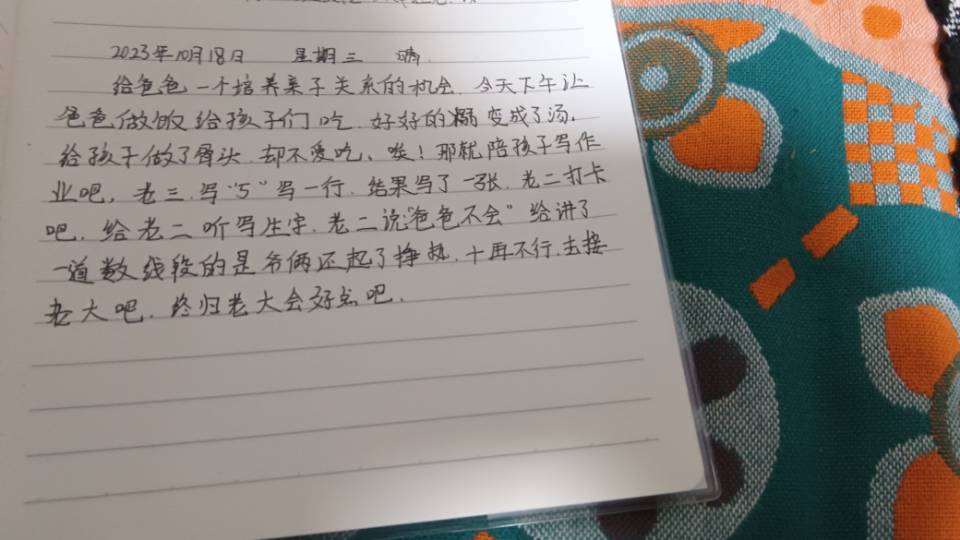 2023年10月18日 星期三 晴.
给爸爸一个培养亲子关系的机会. 今天下午让
爸爸做饭给孩子们吃. 好好的糊变成了汤.
给孩子做了骨头. 却不爱吃、唉! 那就陪孩子写作
业吧, 老三.写"5"写一行. 结果写了一张. 老二打卡
吧. 给老二听写生字. 老二说"爸爸不会" 给讲了
一道数线段的是爷俩还起了挣执. 十再不行.去接
老大吧. 终归老大会好点吧.